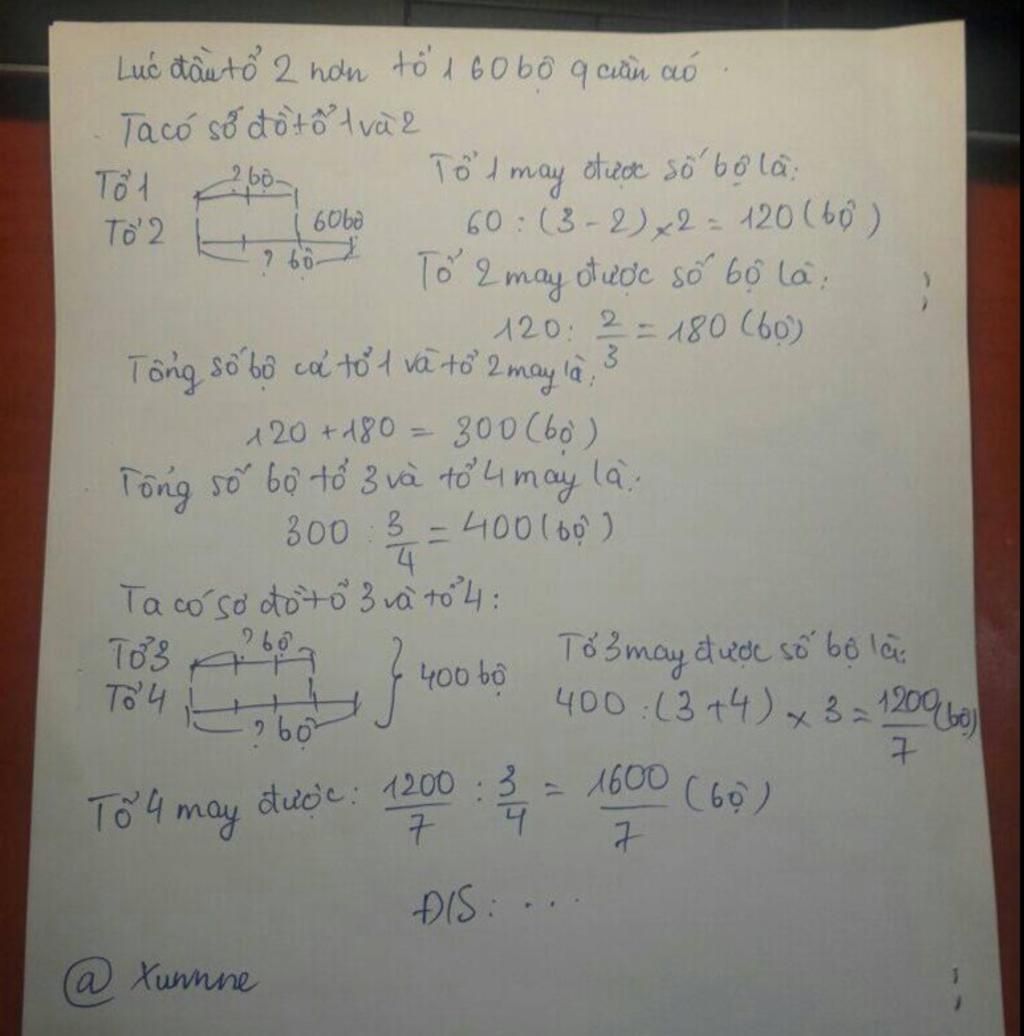 Lúc đầu tổ 2 hơn tổ 1 60 bộ quần áó.
Ta có số đồ tổ 1 và 2
Tổ 1 ? bộ
Tổ 2 60 bộ
? bộ
Tổ 1 may được số bộ là:
60 : (3 - 2) x 2 = 120 (bộ)
Tổ 2 may được số bộ là:
120 : 2/3 = 180 (bộ)
Tổng số bộ cả tổ 1 và tổ 2 may là:
120 + 180 = 300 (bộ)
Tổng số bộ tổ 3 và tổ 4 may là:
300 : 3/4 = 400 (bộ)
Ta có sơ đồ tổ 3 và tổ 4:
Tổ 3 ? bộ
Tổ 4 400 bộ
? bộ
Tổ 3 may được số bộ là:
400 : (3 + 4) x 3 = 1200/7 (bộ)
Tổ 4 may được: 1200/7 : 3/4 = 1600/7 (bộ)
Đ/S: ...
@ Xunnne